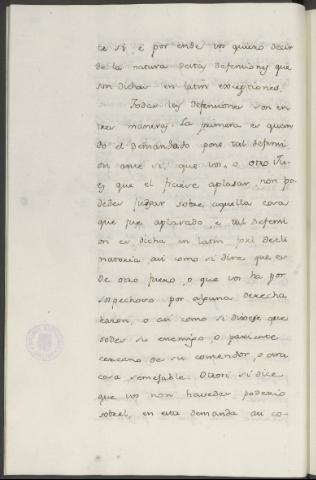 te si é por ende vos quiero decir
de la natura destas defensiones que
son dichas en latin exceptiones.
Todas las defensiones son en
tres maneras. La primera es quan
do el demandado pone tal defensi
on ante si, que vos, o otro Ju-
ez que el ficiere aplasar, non po-
dedes juzgar sobre aquella cosa
que fue aplasado, e tal defensi
on es dicha en latin foxi decli
natoxia asi como si dice que es
de otro fuero, o que vos ha por
sospechoso por alguna derecha
razon, o asi como si dixiese que
sodes su enemigo, o pariente
cercano de su contendor, o otra
cosa semejable. Otrosi si dice
que vos non havedes poderio
sobrel, en esta demanda asi co-